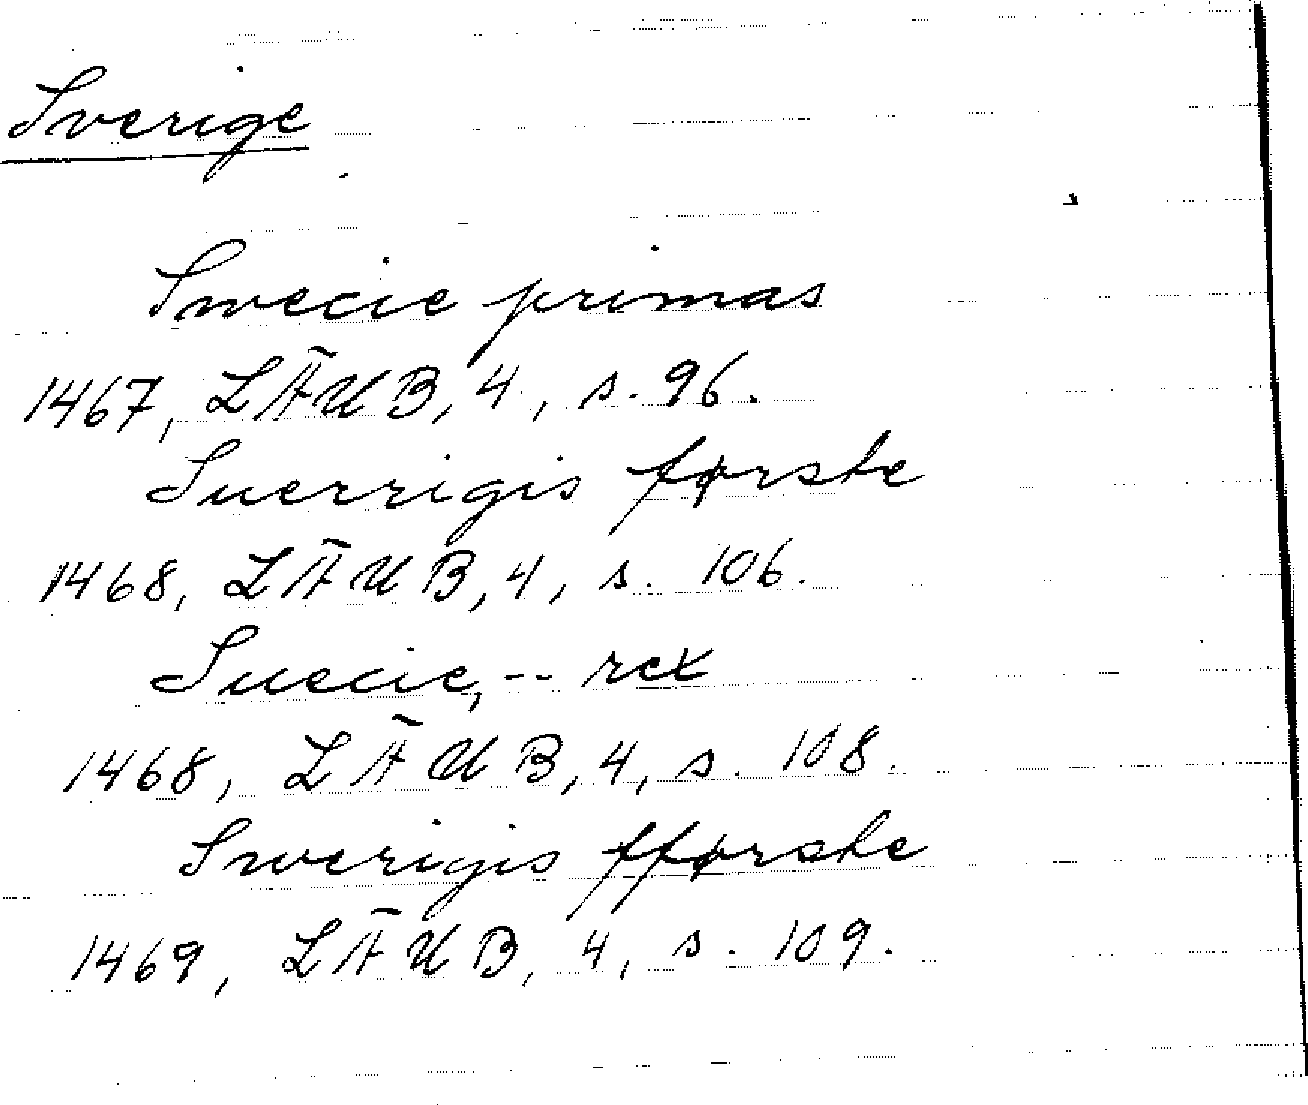 Sverige
Swecie primas
1467, LÄUB, 4, s. 96.
Suerrigis første
1468, LÄUB, 4, s. 106.
Suecie, -- rex
1468, LÄUB, 4, s. 108.
Swerigis fførste
1469, LÄUB, 4, s. 109.